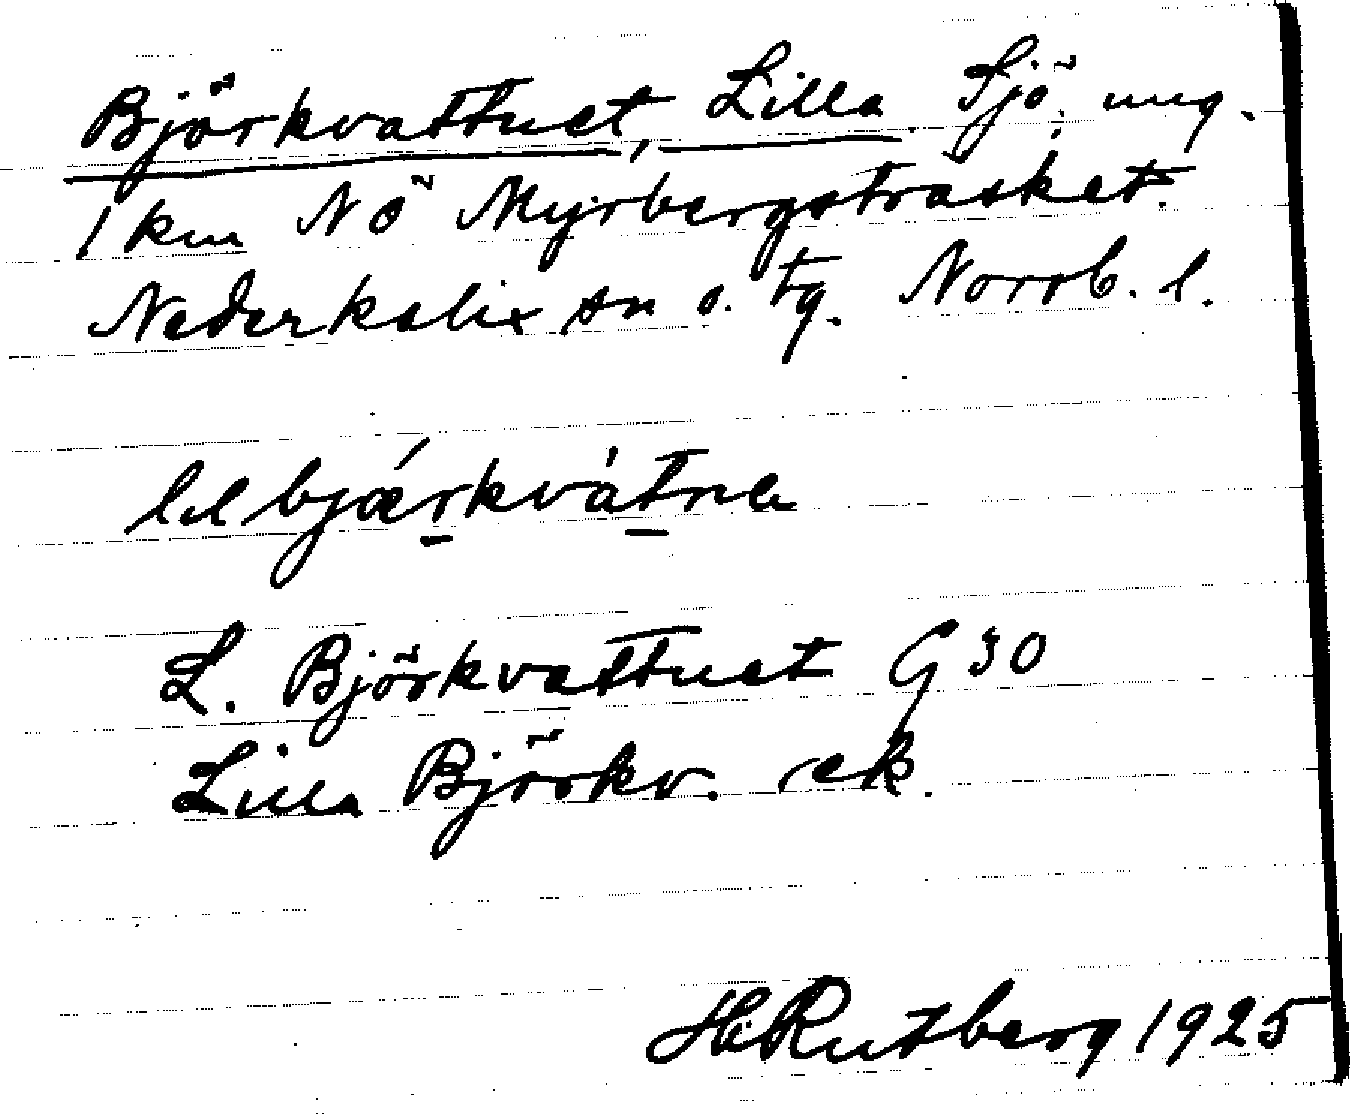 Björkvattnet, Lilla Sjö, ung.
1 km NÖ Myrbergsträsket.
Nederkalix sn o. tg. Norrb. l.
lɩl bjǽrkvàtnə
L. Björkvattnet G 30
Lilla Björkv. ek.
H. Rutberg 1925